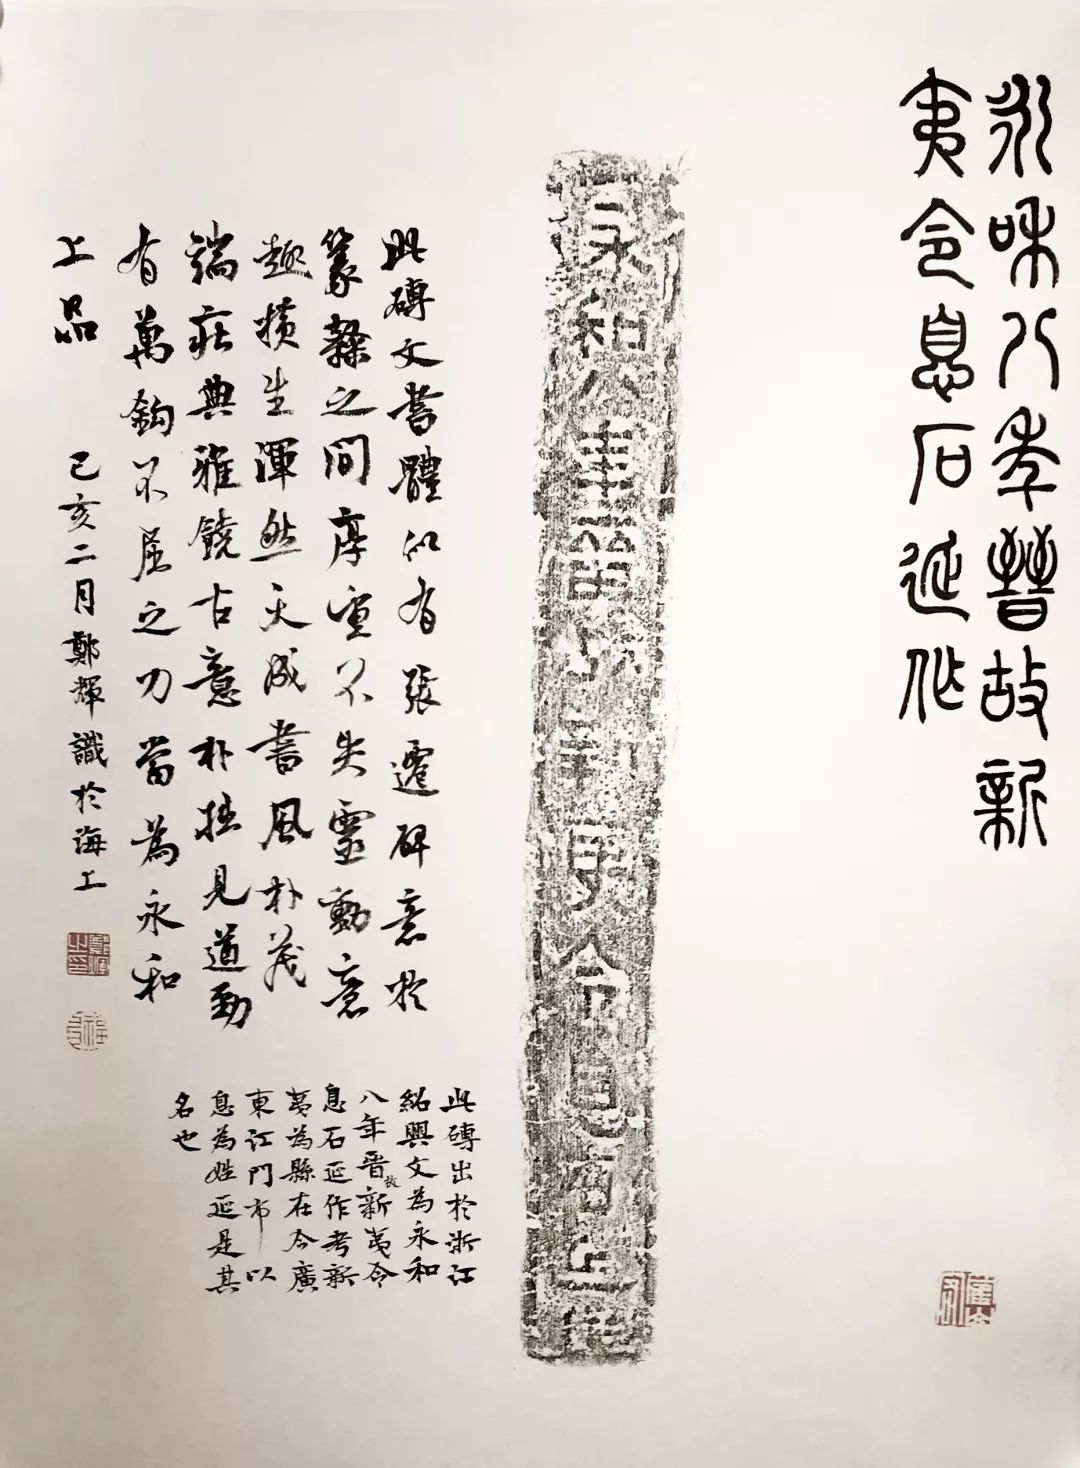 永和八年晉故新
夷令息石延作
永和八年晉故新夷令息石延作
此磚文書體似有張遷碑意於
篆隸之間厚重不失靈動意
趣橫生渾然天成書風朴茂
端莊典雅饒古意朴拙見遒勁
有萬鈞不屈之力當為永和
上品
己亥二月鄭輝識於海上
此磚出於浙江
紹興文為永和
八年晉故新夷令
息石延作考新
夷為縣在今廣
東江門市以
息為姓延是其
名也